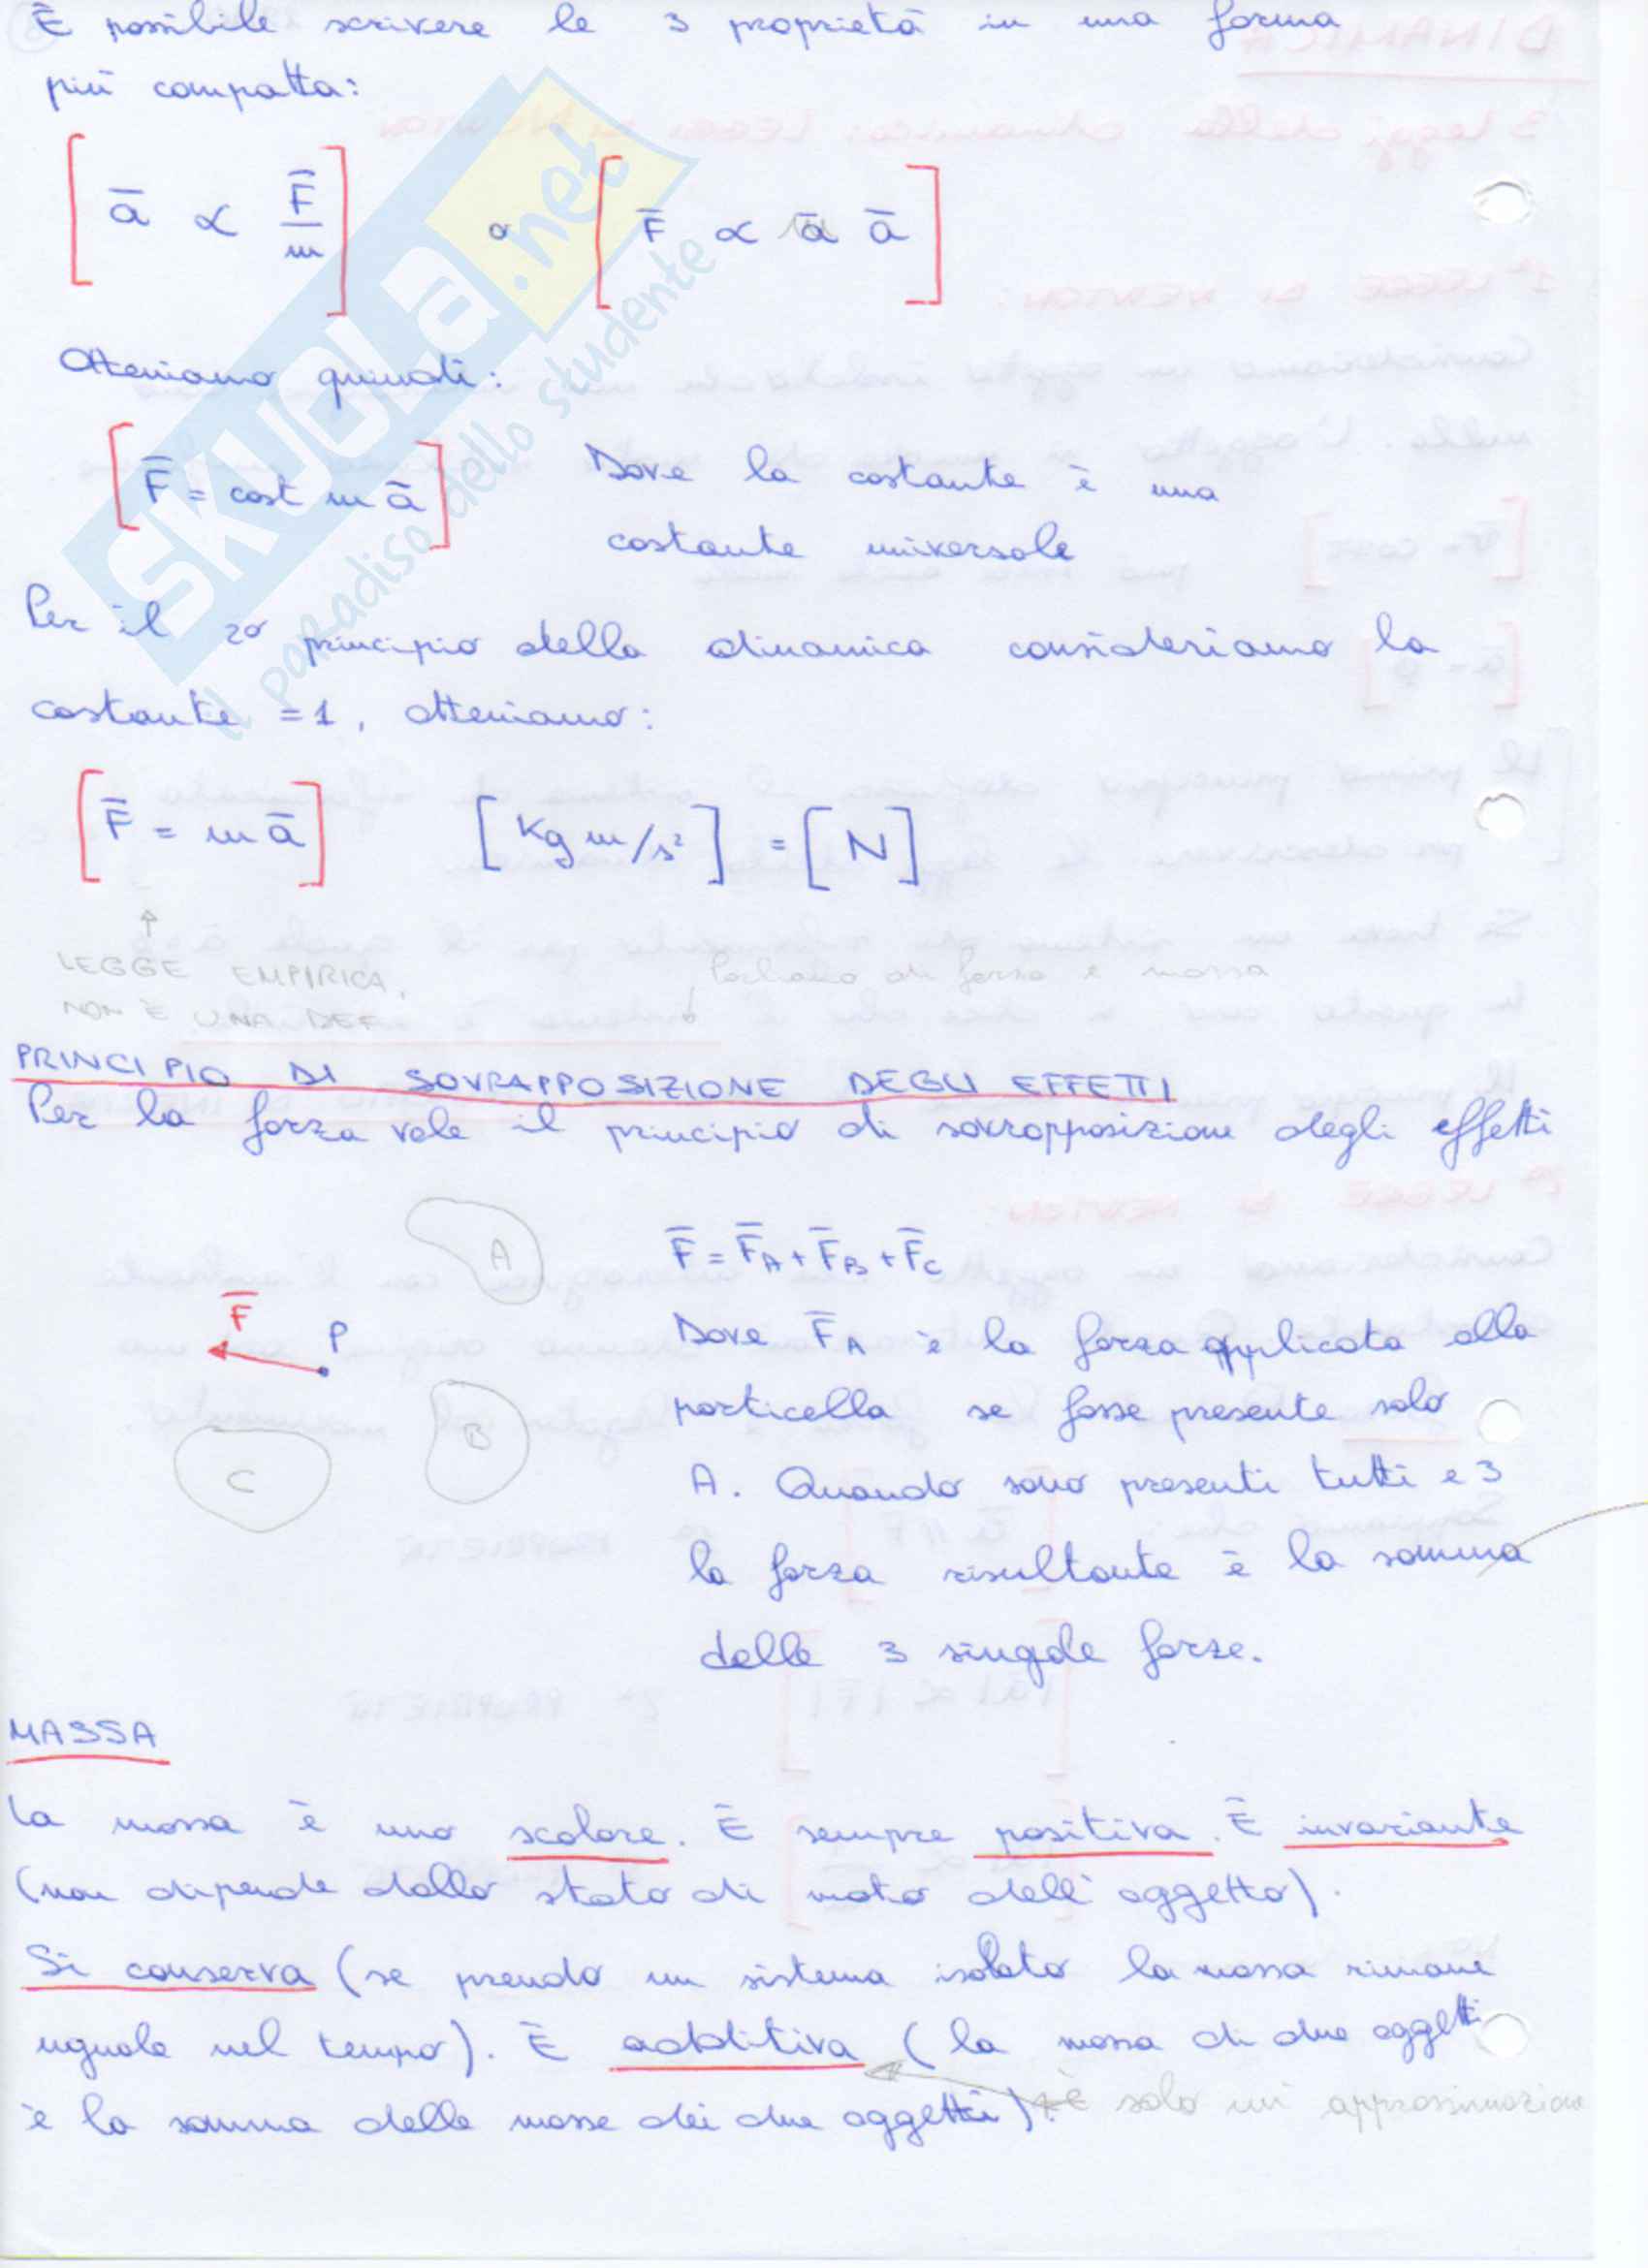 È possibile scrivere le 3 proprietà in una forma
più compatta:
[ā ∝ F̄/m] o [F̄ ∝ ā ā]
Otteniamo quindi:
[F̄ = cost m ā] Dove la costante è una
costante universale
Per il 2o principio della dinamica consideriamo la
costante =1, otteniamo:
[F̄ = m ā] [Kg m/s²] = [N]
↑
LEGGE EMPIRICA, Parliamo di forza e massa
NON È UNA DEF. ↓
PRINCIPIO DI SOVRAPPOSIZIONE DEGLI EFFETTI
Per la forza vale il principio di sovrapposizione degli effetti
A
F̄ = F̄A + F̄B + F̄C
F̄ P
Dove F̄A è la forza applicata alla
particella se fosse presente solo
B
C
A. Quando sono presenti tutti e 3
la forza risultante è la somma
delle 3 singole forze.
MASSA
La massa è uno scalare. È sempre positiva. È invariante
(non dipende dallo stato di moto dell'oggetto).
Si conserva (se prendo un sistema isolato la massa rimane
uguale nel tempo). È additiva (la massa di due oggetti
è la somma delle masse dei due oggetti). È solo un'approssimazione
SKUOLA.net
il paradiso dello studente